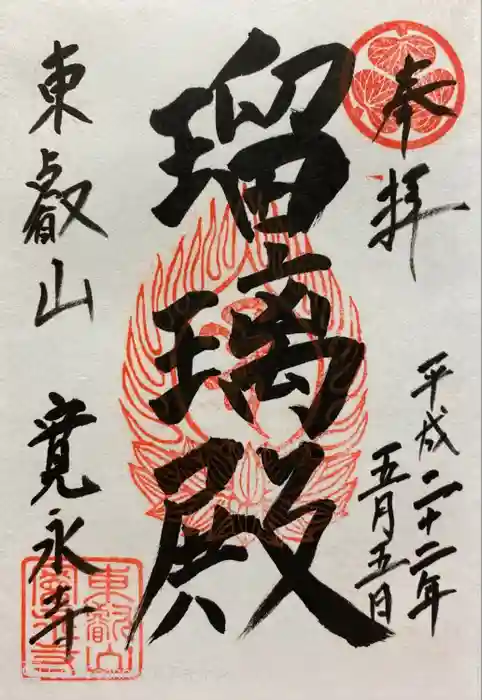 奉拝
平成二十二年
五月五日
瑠璃殿
東叡山 寛永寺
東叡山
寛永寺